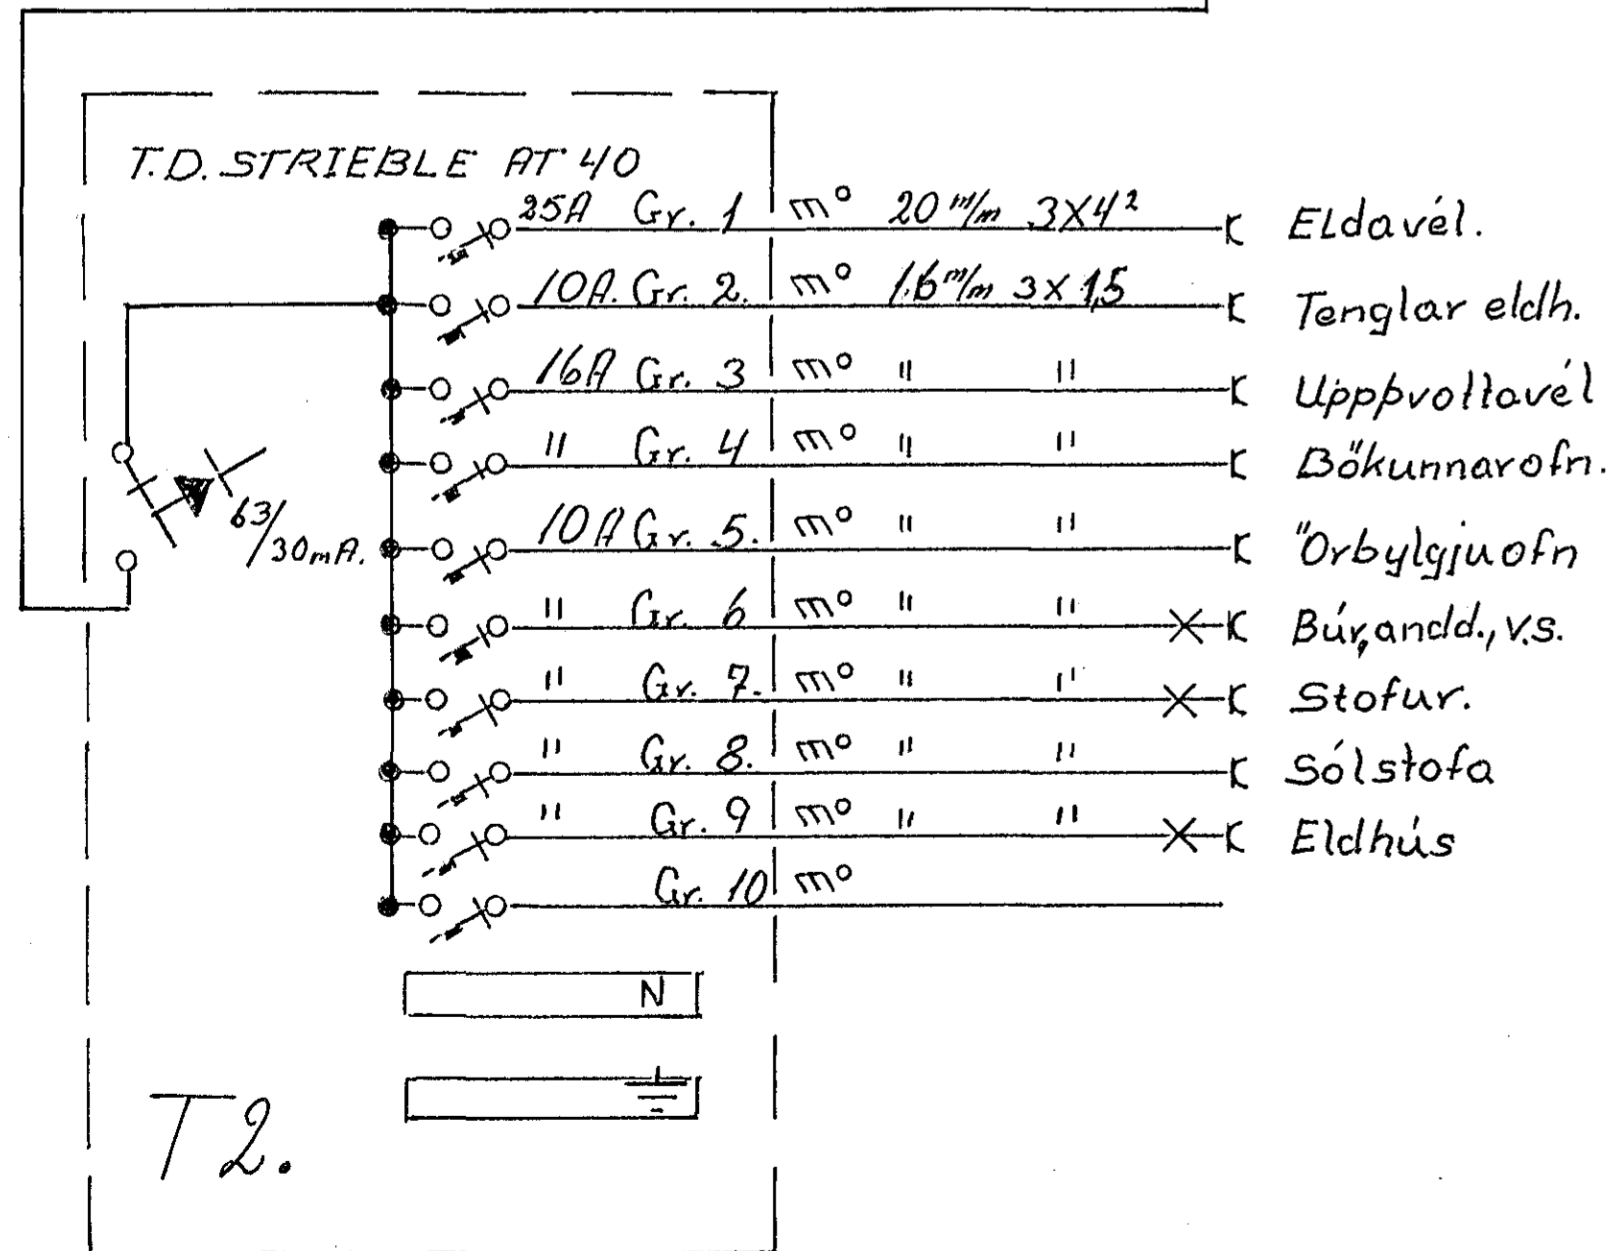 T.D. STRIEBLE AT 40
25A Gr. 1 m° 20 m/m 3X4² Eldavél.
10A. Gr. 2. m° 16 m/m 3X1,5 Tenglar eldh.
16A Gr. 3 m° " " Uppþvottavél
" Gr. 4 m° " " Bökunnarofn.
10A Gr. 5. m° " " Örbylgjuofn
" Gr. 6 m° " " Búr, andd., v.s.
" Gr. 7. m° " " Stofur.
" Gr. 8. m° " " Sólstofa
" Gr. 9 m° " " Eldhús
Gr. 10 m°
63/30mA.
N
T2.